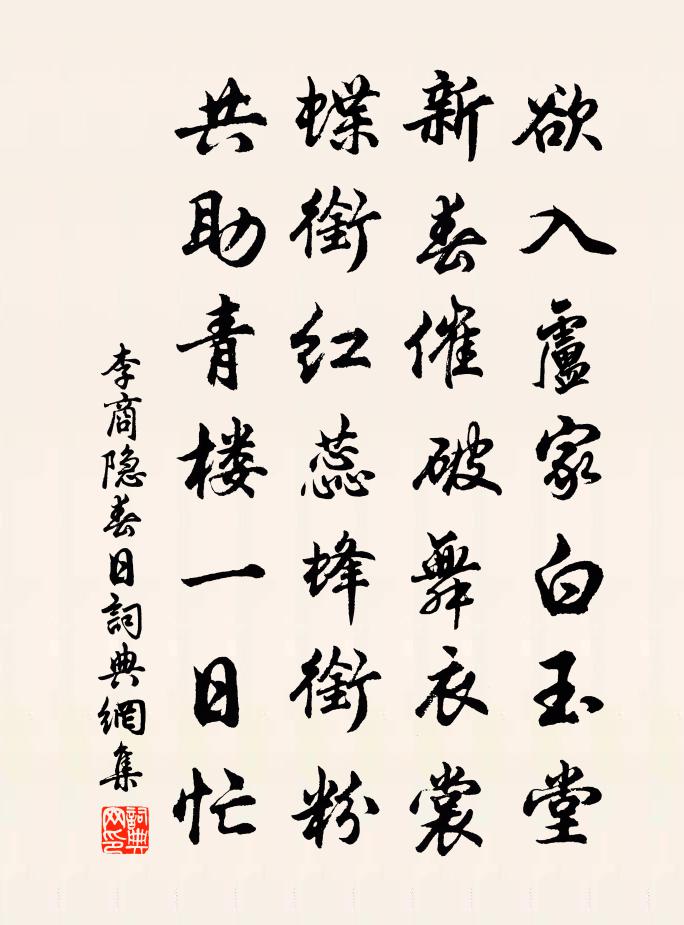 欲入盧家白玉堂
新春催破舞衣裳
蝶銜红蕊蜂銜粉
共助青楼一日忙
李商隐春日詞典網集
詞典網印